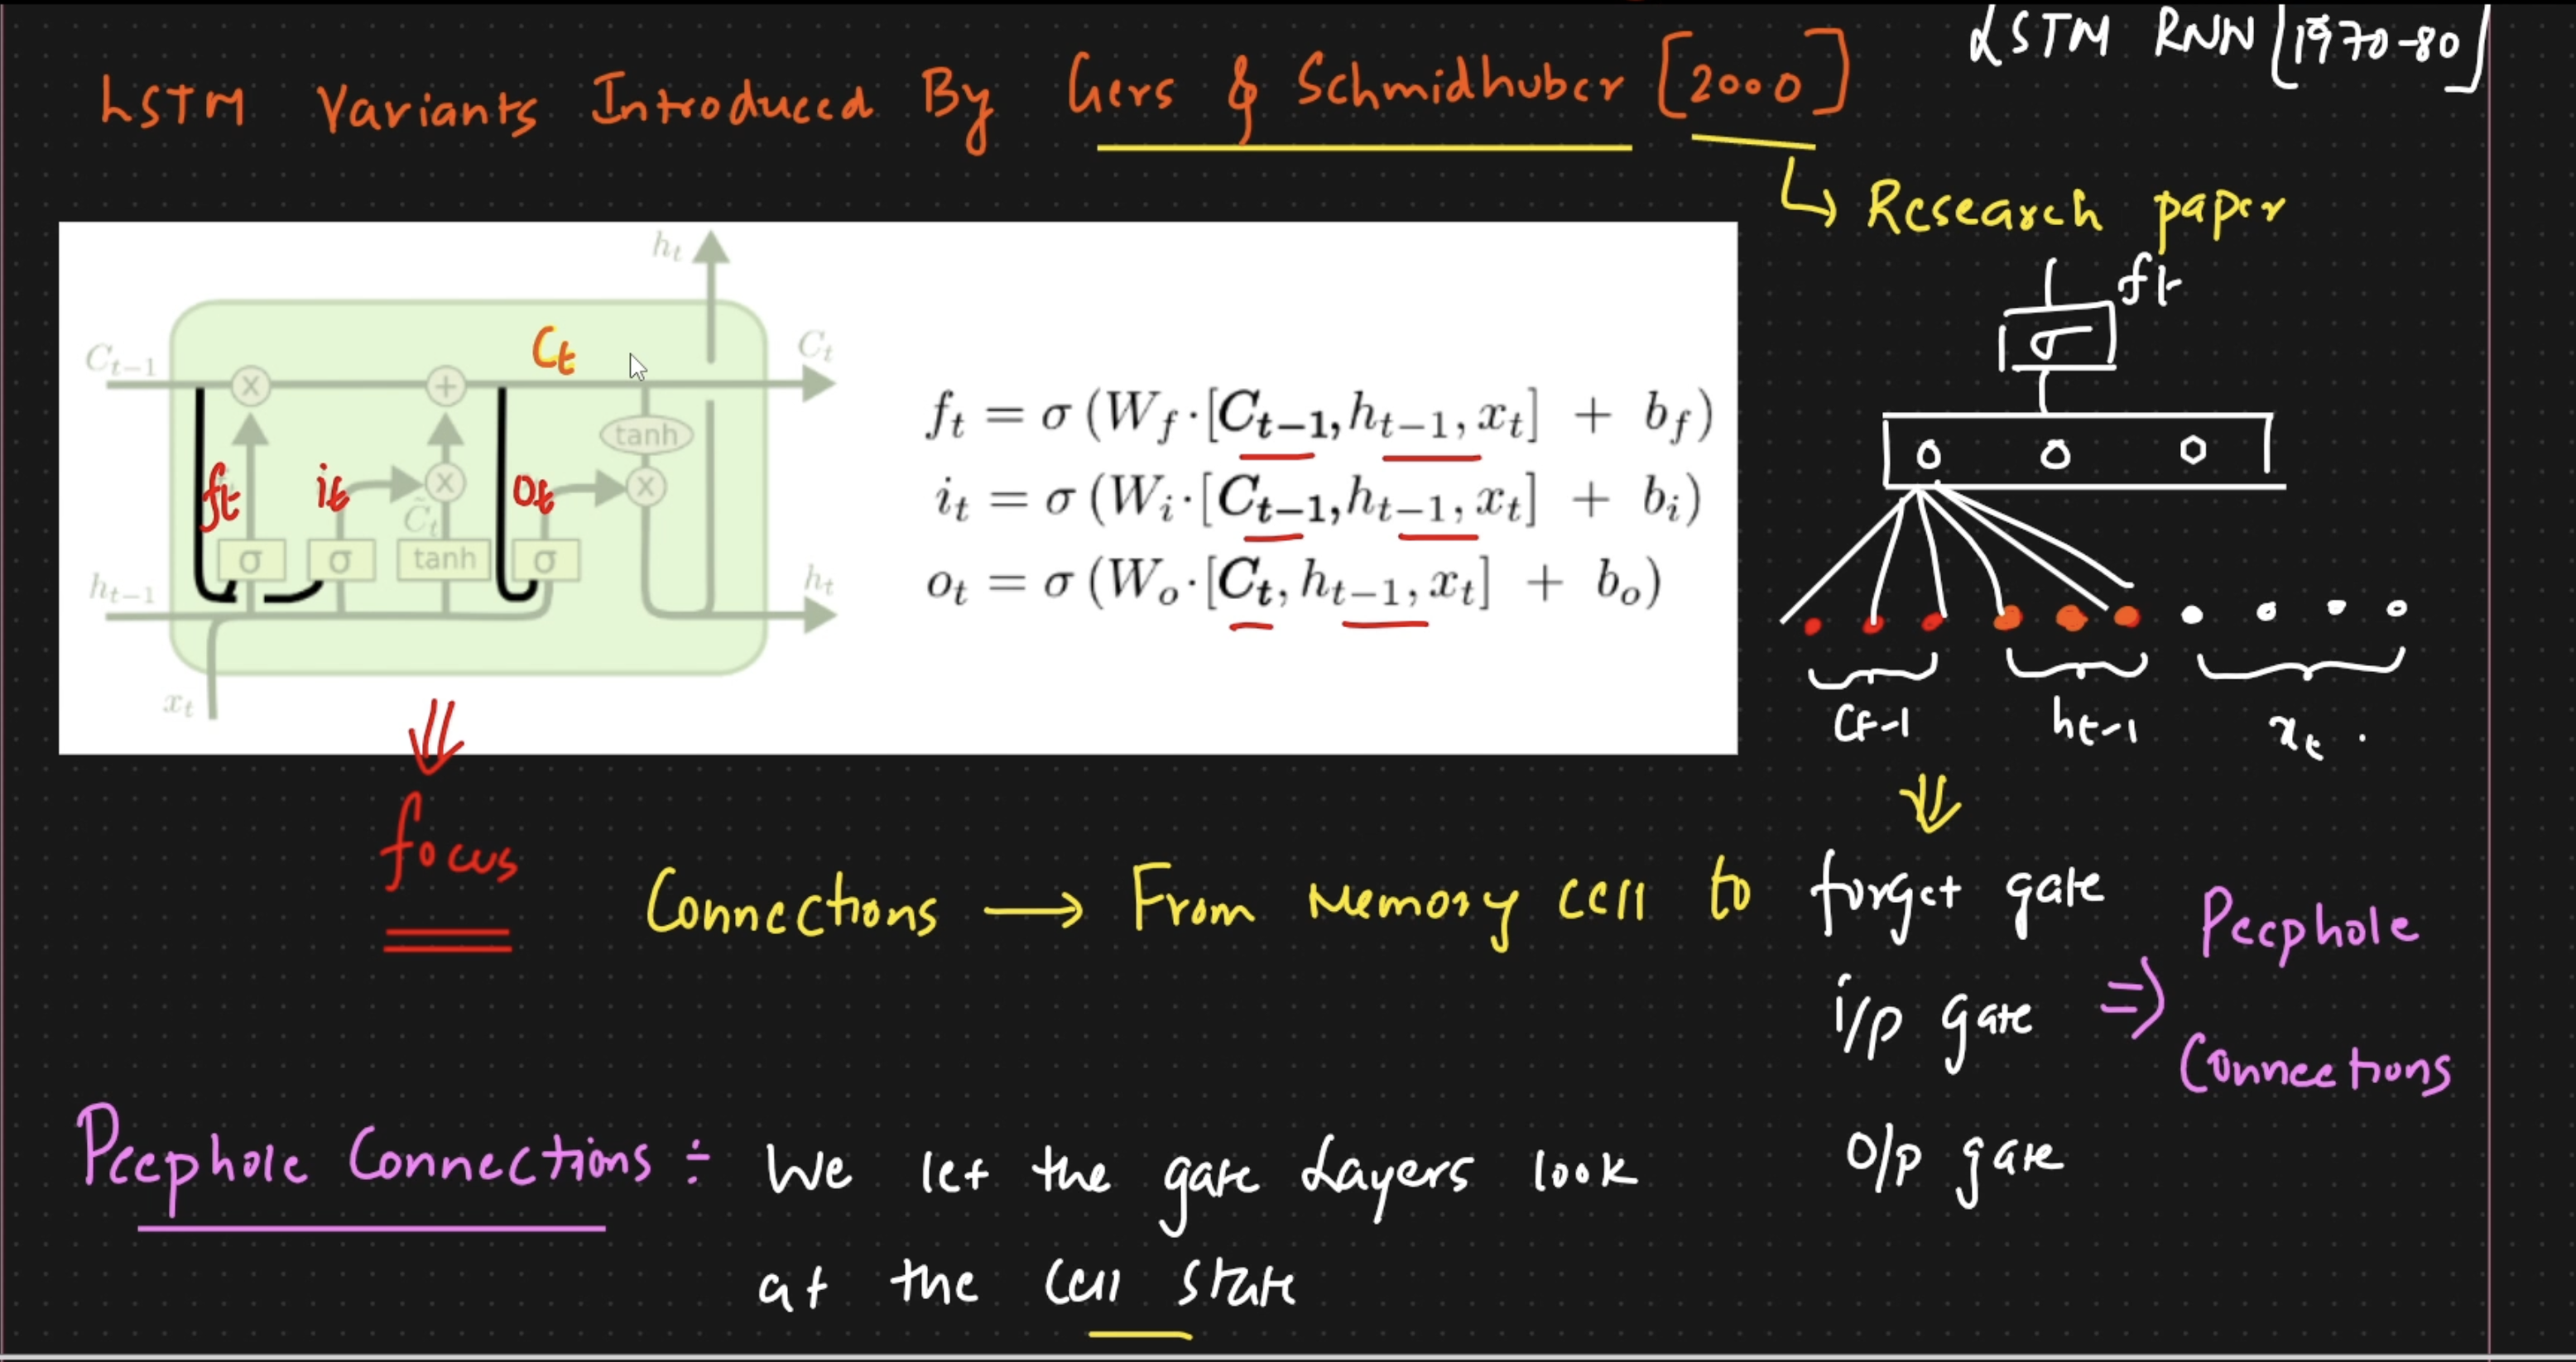 LSTM RNN [1970-80]
LSTM Variants Introduced By Gers & Schmidhuber [2000]
↳ Research paper
h_t
C_{t-1}
C_t
C_t
tanh
f_t
i_t
C̃_t
o_t
σ
σ
tanh
σ
h_{t-1}
h_t
x_t
f_t = σ (W_f · [C_{t-1}, h_{t-1}, x_t] + b_f)
i_t = σ (W_i · [C_{t-1}, h_{t-1}, x_t] + b_i)
o_t = σ (W_o · [C_t, h_{t-1}, x_t] + b_o)
ft
σ
Ct-1 ht-1 xt
focus
Connections → From Memory cell to forget gate
i/p gate ⇒ Peephole Connections
O/p gate
Peephole Connections ÷ We let the gate Layers look
at the Cell state